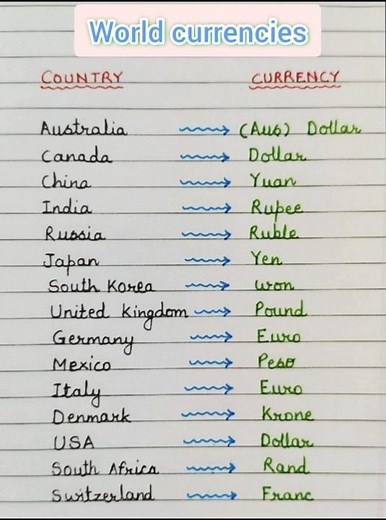 World currencies
COUNTRY CURRENCY
Australia (Aus) Dollar
Canada Dollar
China Yuan
India Rupee
Russia Ruble
Japan Yen
South Korea won
United kingdom Pound
Germany Euro
Mexico Peso
Italy Euro
Denmark Krone
USA Dollar
South Africa Rand
Switzerland Franc